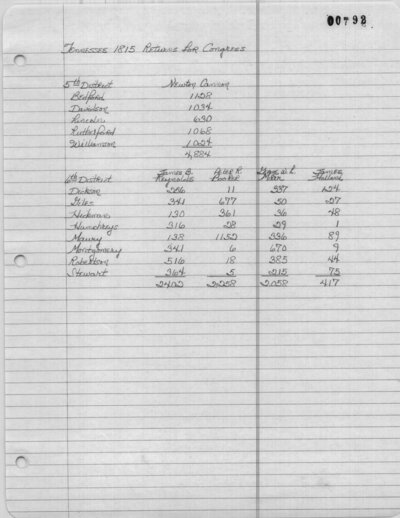 00798
Tennessee 1815 Returns for Congress
5th District Newton Cannon
Bedford 1128
Davidson 1034
Lincoln 630
Rutherford 1068
Williamson 1024
4,884
James B. Peter R. George W. L. James
6th District Reynolds Booker Marr
Dickson 256 11 337 124
Giles 341 677 50 27
Hickman 130 361 36 48
Humphreys 316 28 29 1
Maury 138 1152 336 89
Montgomery 341 6 670 9
Robertson 516 18 385 44
Stewart 364 5 215 75
2402 2258 2058 417